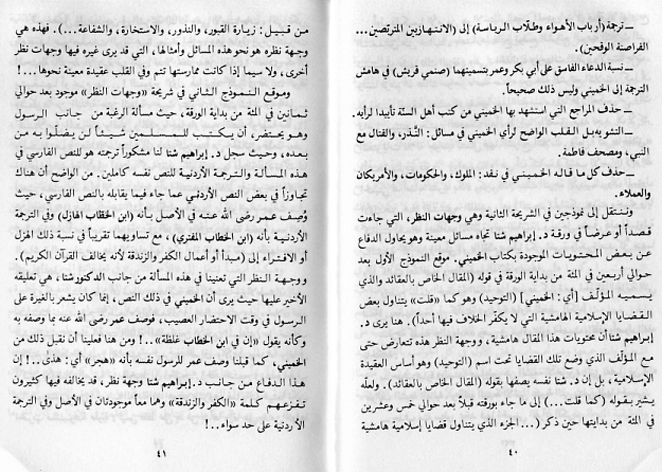 ــ ترجمة (أرباب الأهواء وطلّاب الرياسة) إلى (الانتهازيين المتربّصين ...
الفراصنة الوقحين).
ــ نسبة الدعاء الفاسق على أبي بكر وعمر بتسميتهما (صنمي قريش) في هامش
الترجمة إلى الخميني وليس ذلك صحيحاً.
ــ حذف المراجع التي استشهد بها الخميني من كتب أهل السنّة تأييدا لرأيه.
ــ التشويه بل القلب الواضح لرأي الخميني في مسائل: النُّذر، والقتال مع
النبي، ومصحف فاطمة.
ــ حذف كل ما قاله الخميني في نقد: الملوك، والحكومات، والأمريكان
والعملاء.
وننتقل إلى نموذجين في الشريحة الثانية وهي وجهات النظر، التي جاءت
قصداً أو عرضاً في ورقة د. إبراهيم شتا تجاه مسائل معينة وهو يحاول الدفاع
عن بعض المحتويات الموجودة بكتاب الخميني. موقع النموذج الأول بعد
حوالي أربعين في المئة من بداية الورقة في قوله (المقال الخاص بالعقائد والذي
يسميه المؤلّف [أي: الخميني] (التوحيد) وهو كما «قلت» يتناول بعض
القضايا الإسلامية الهامشية التي لا يكفّر الخلاف فيها أحداً). هنا يرى د.
إبراهيم شتا أن محتويات هذا المقال هامشية، ووجهة النظر هذه تتعارض حتى
مع المؤلف الذي وضع تلك القضايا تحت اسم (التوحيد) وهو أساس العقيدة
الإسلامية، بل إن د. شتا نفسه يصفها بقوله (المقال الخاص بالعقائد). ولعلّه
يشير بقوله (كما قلت...) إلى ما جاء بورقته قبلاً بعد حوالي خمس وعشرين
في المئة من بدايتها حين ذكر (... الجزء الذي يتناول قضايا إسلامية هامشية
٤٠
من قبيل: زيارة القبور، والنذور، والاستخارة، والشفاعة...). فهذه هي
وجهة نظره هو نحو هذه المسائل وأمثالها، التي قد يرى غيره فيها وجهات نظر
أخرى، ولا سيما إذا كانت ممارستها تتم وفي القلب عقيدة معينة نحوها...!
وموقع النموذج الثاني في شريحة «وجهات النظر» موجود بعد حوالي
ثمانين في المئة من بداية الورقة، حيث مسألة الرغبة من جانب الرسول
وهو يحتضر، أن يكتب للمسلمين شيئاً لن يضلّوا به من
بعده، وحيث سجل د. إبراهيم شتا لنا مشكوراً ترجمته هو للنص الفارسي في
هذه المسألة والترجمة الأردنية للنص نفسه كاملين. من الواضح أن هناك
تجاوزاً في بعض النص الأردني عما جاء فيما يقابله بالنص الفارسي، حيث
وُصِف عمر رضي الله عنه في الأصل بأنه (ابن الخطاب الهازل) وفي الترجمة
الأردنية بأنه (ابن الخطاب المفتري)، مع تساويهما تقريباً في نسبة ذلك الهزل
أو الافتراء إلى (مبدأ أو أعمال الكفر والزندقة لأنه يخالف القرآن الكريم).
ووجهة النظر التي تعنينا في هذه المسألة من جانب الدكتور شتا، هي تعليقه
الأخير عليها حيث يرى أن الخميني في ذلك النص، إنما كان يشعر بالغيرة على
الرسول في وقت الاحتضار العصيب، فوصف عمر رضي الله عنه بما وصفه به
وكأنه يقول «إن في ابن الخطاب غلظة»..! ومن هنا فعلينا أن نقبل ذلك من
الخميني، كما قبلنا وصف عمر للرسول نفسه بأنه «هجر» أي: هذى..! إن
هذا الدفاع من جانب د. إبراهيم شتا وجهة نظر، قد يخالفه فيها كثيرون
تفزعهم كلمة «الكفر والزندقة» وهما معاً موجودتان في الأصل وفي الترجمة
الأردنية على حد سواء..!
٤١